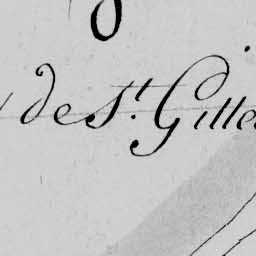 de St. Gilles